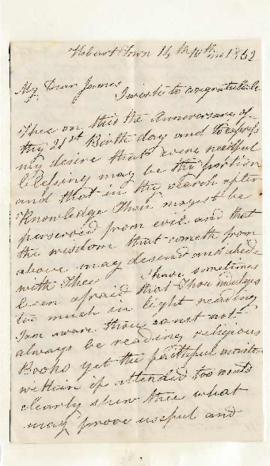 Hobart Town 14th 10th mo 1862
My Dear James
I wish to congratulate
Thee on this the Anniversary of
thy 21st Birth day and to express
my desire that every needful
blessing may be thy portion
and that in thy search after
Knowledge Thou mayst be
preserved from evil and that
the wisdom that cometh from
above may descend and abide
with Thee I have sometimes
been afraid that Thou indulges
too much in light reading
I am aware thou canst not
always be reading religious
Books yet the faithful monitor
within if attended too wonts
clearly shew thee what
may prove useful and